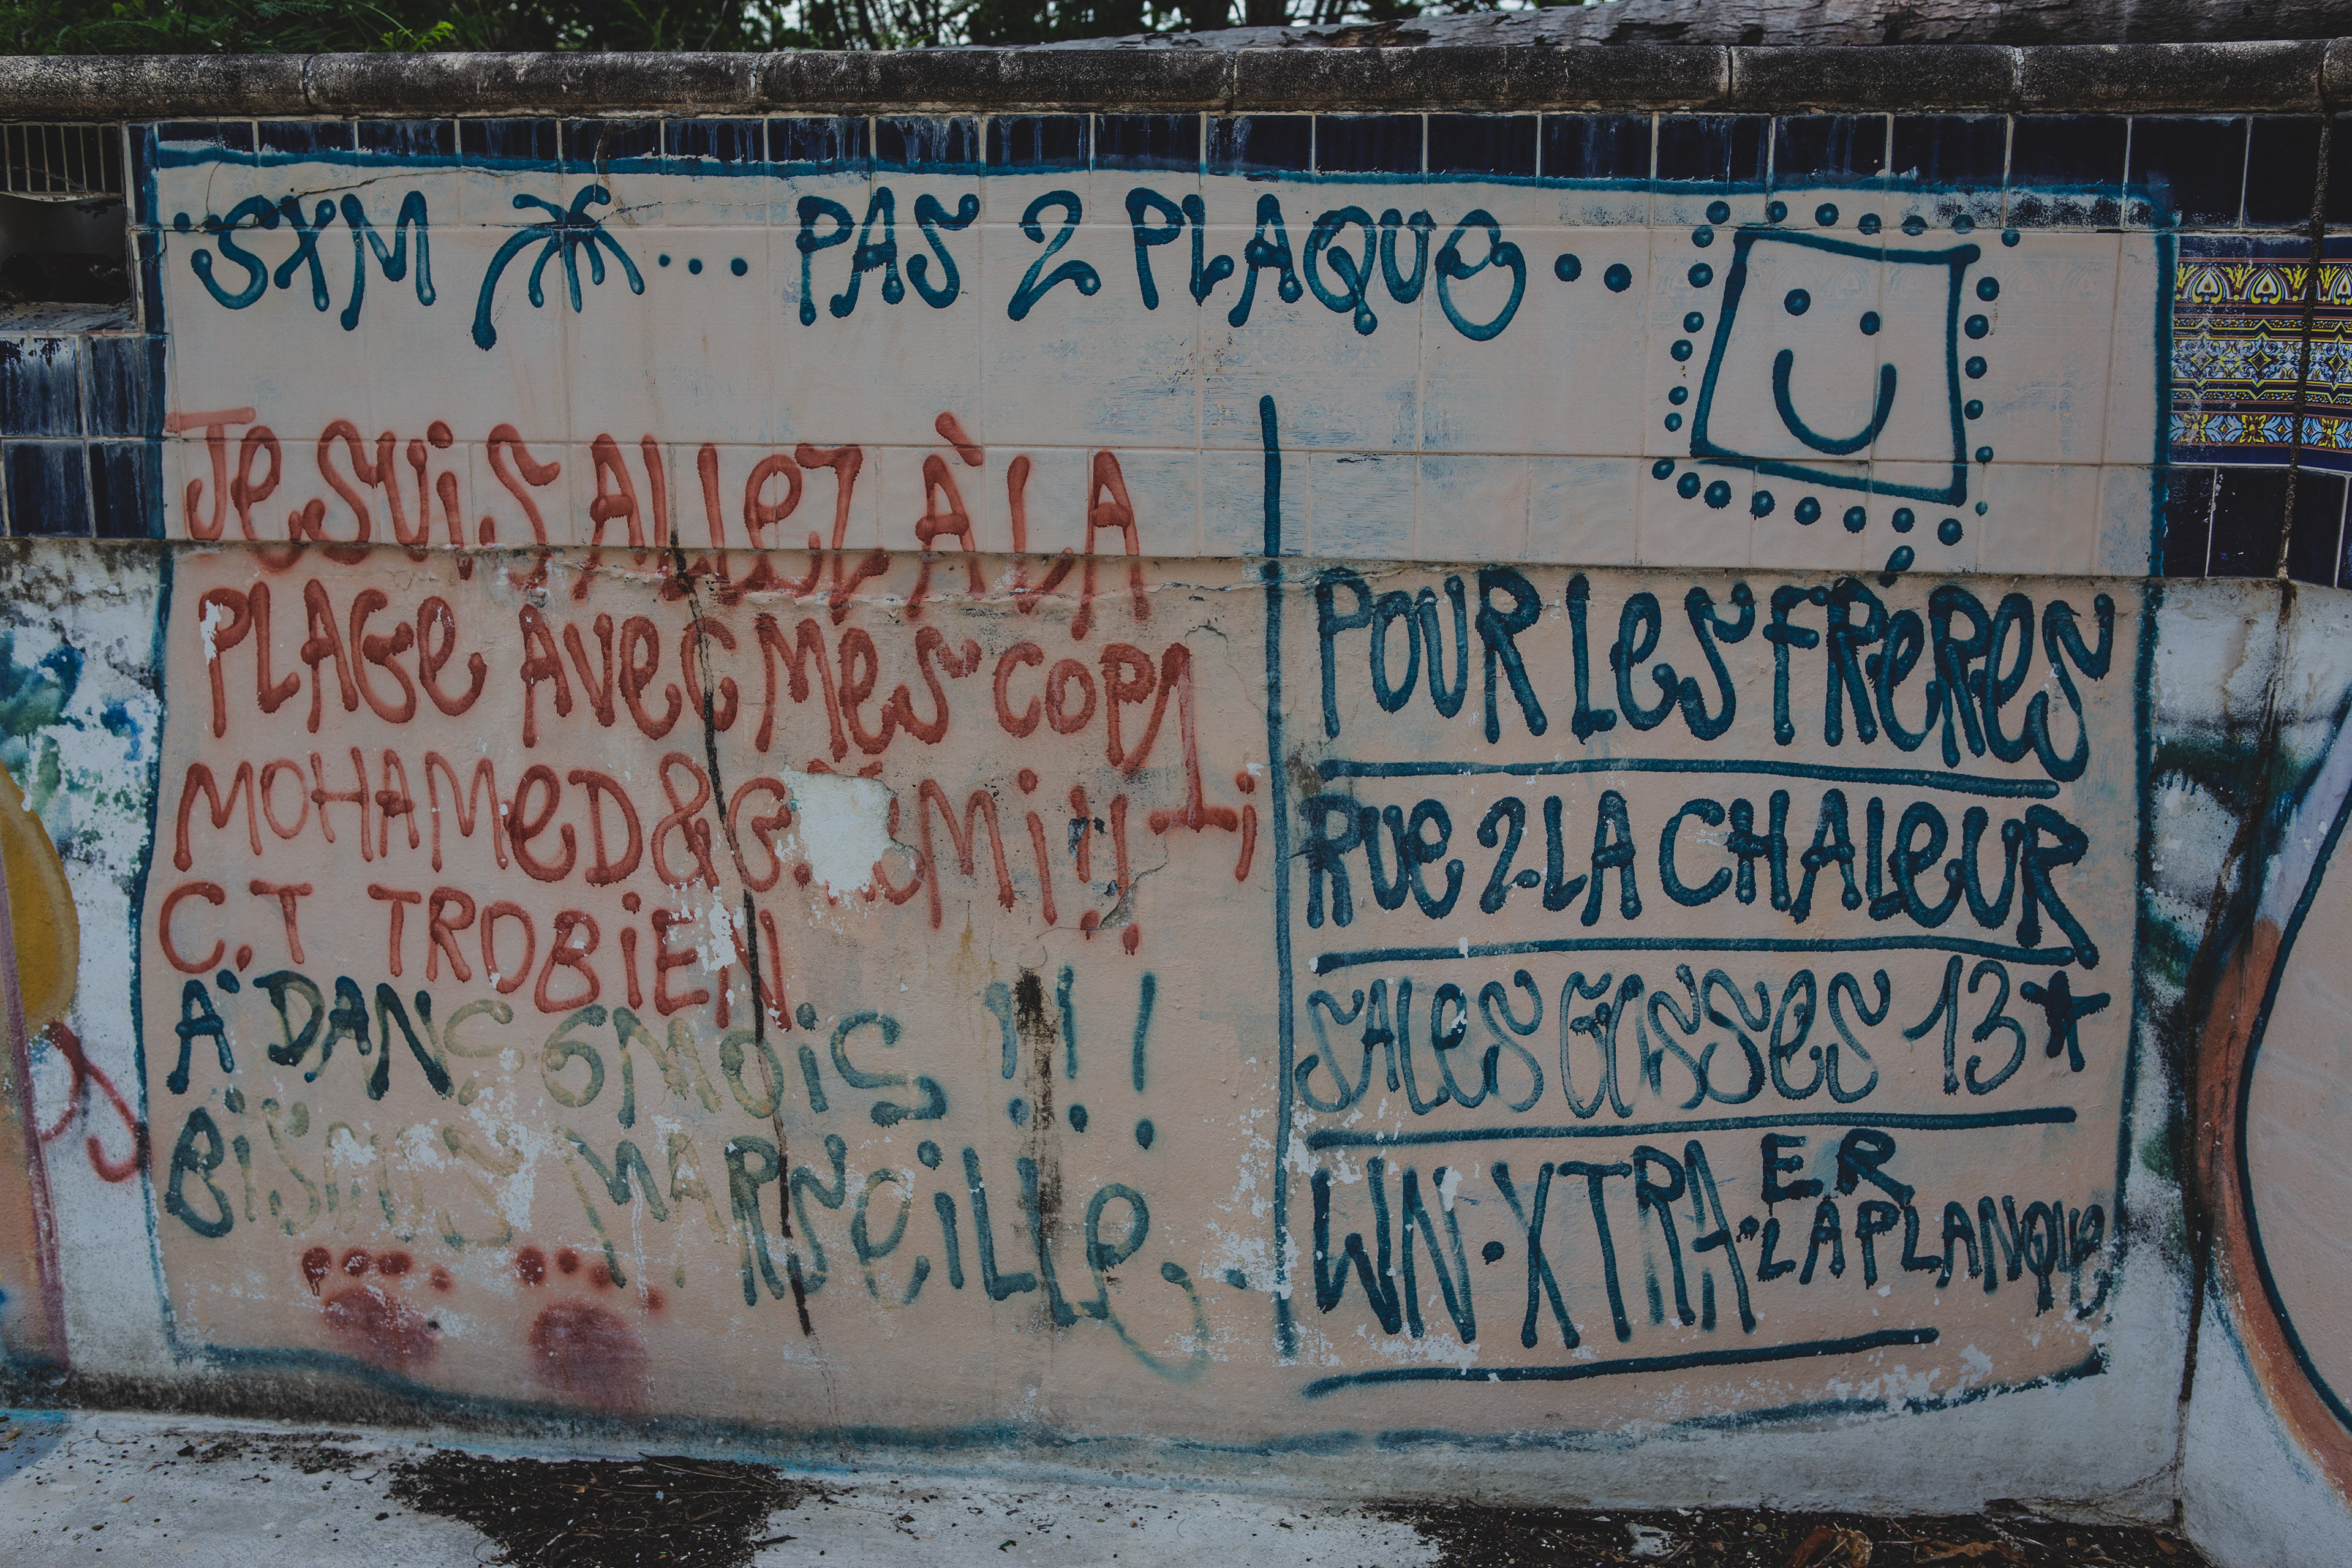 SXM ... PAS 2 PLAQUE..
JE SUIS ALLEZ À LA
PLAGE AVEC MES COPI
MOHAMED & MI !!
C.T TROBIEN
A DANS 6 MOIS !!!
BISOUS MARSEILLE..
POUR LES FRÉRES
RUE 2 LA CHALEUR
SALES GOSSES 13
WN.XTRA.LAPLANQUE
ER